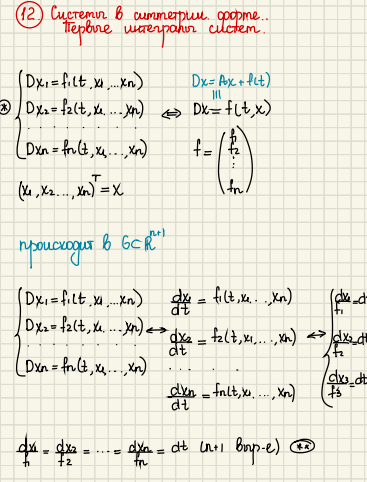 12 Системы в симметрич. форме..
Первые интегралы систем.
Dx₁ = f₁(t, x₁, ... xₙ)
Dx₂ = f₂(t, x₁, ..., xₙ)
. . . . . . . .
Dxₙ = fₙ(t, x₁, ..., xₙ)
* ⇔
Dx = Ax + f(t)
|||
Dx = f(t, x)
f = (f₁ f₂ ⋮ fₙ)
(x₁, x₂ ..., xₙ)ᵀ = x
происходит в G⊂ℝⁿ⁺¹
Dx₁ = f₁(t, x₁, ... xₙ) dx₁/dt = f₁(t, x₁, ..., xₙ) dx₁/f₁ = d
Dx₂ = f₂(t, x₁, ..., xₙ) ↔ dx₂/dt = f₂(t, x₁, ..., xₙ) ↔ dx₂/f₂ = dt
. . . . . . . . . . . . . dx₃/f₃ = dt
Dxₙ = fₙ(t, x₁, ..., xₙ) dxₙ/dt = fₙ(t, x₁, ..., xₙ)
dx₁/f₁ = dx₂/f₂ = ... = dxₙ/fₙ = dt (n+1 впр-е) **